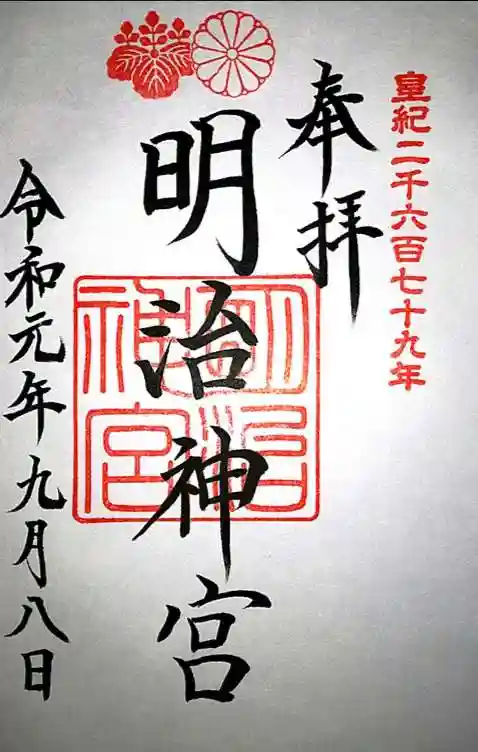 皇紀二千六百七十九年
奉拝
明治神宮
明治神宮
令和元年九月八日